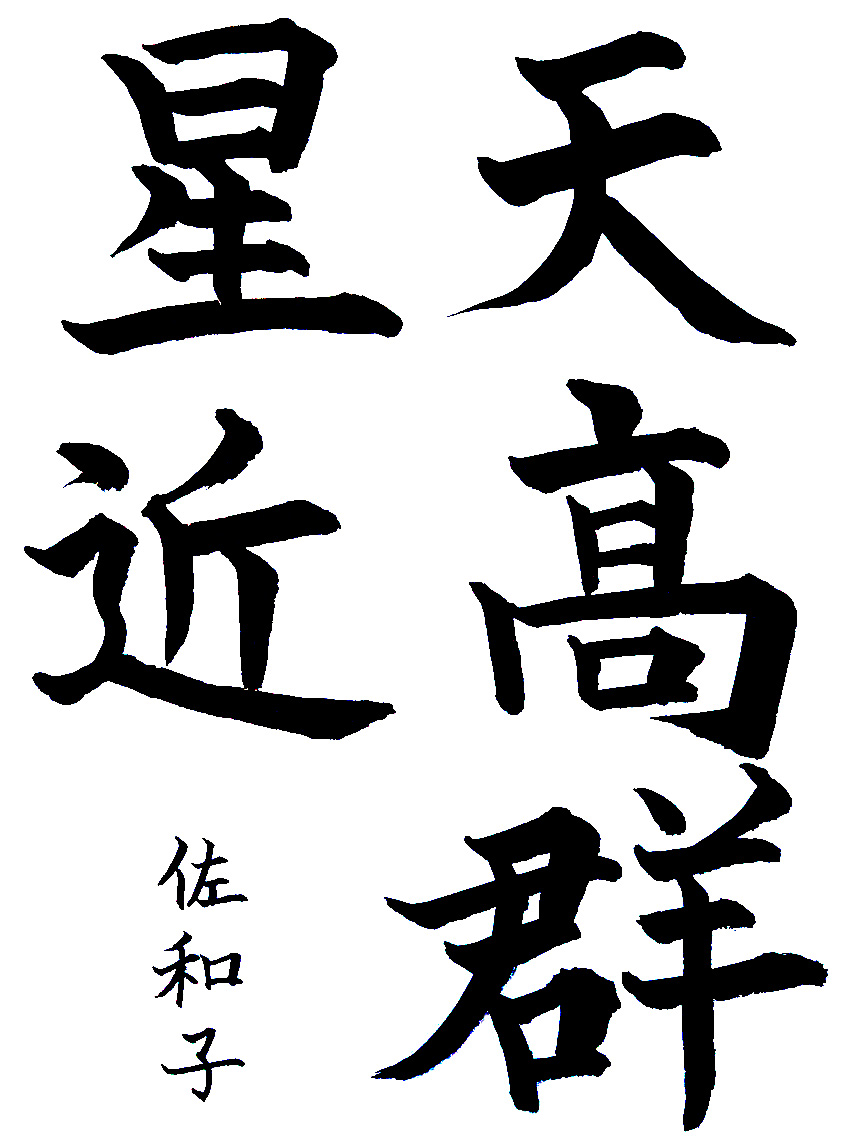 天高群
星近
佐和子